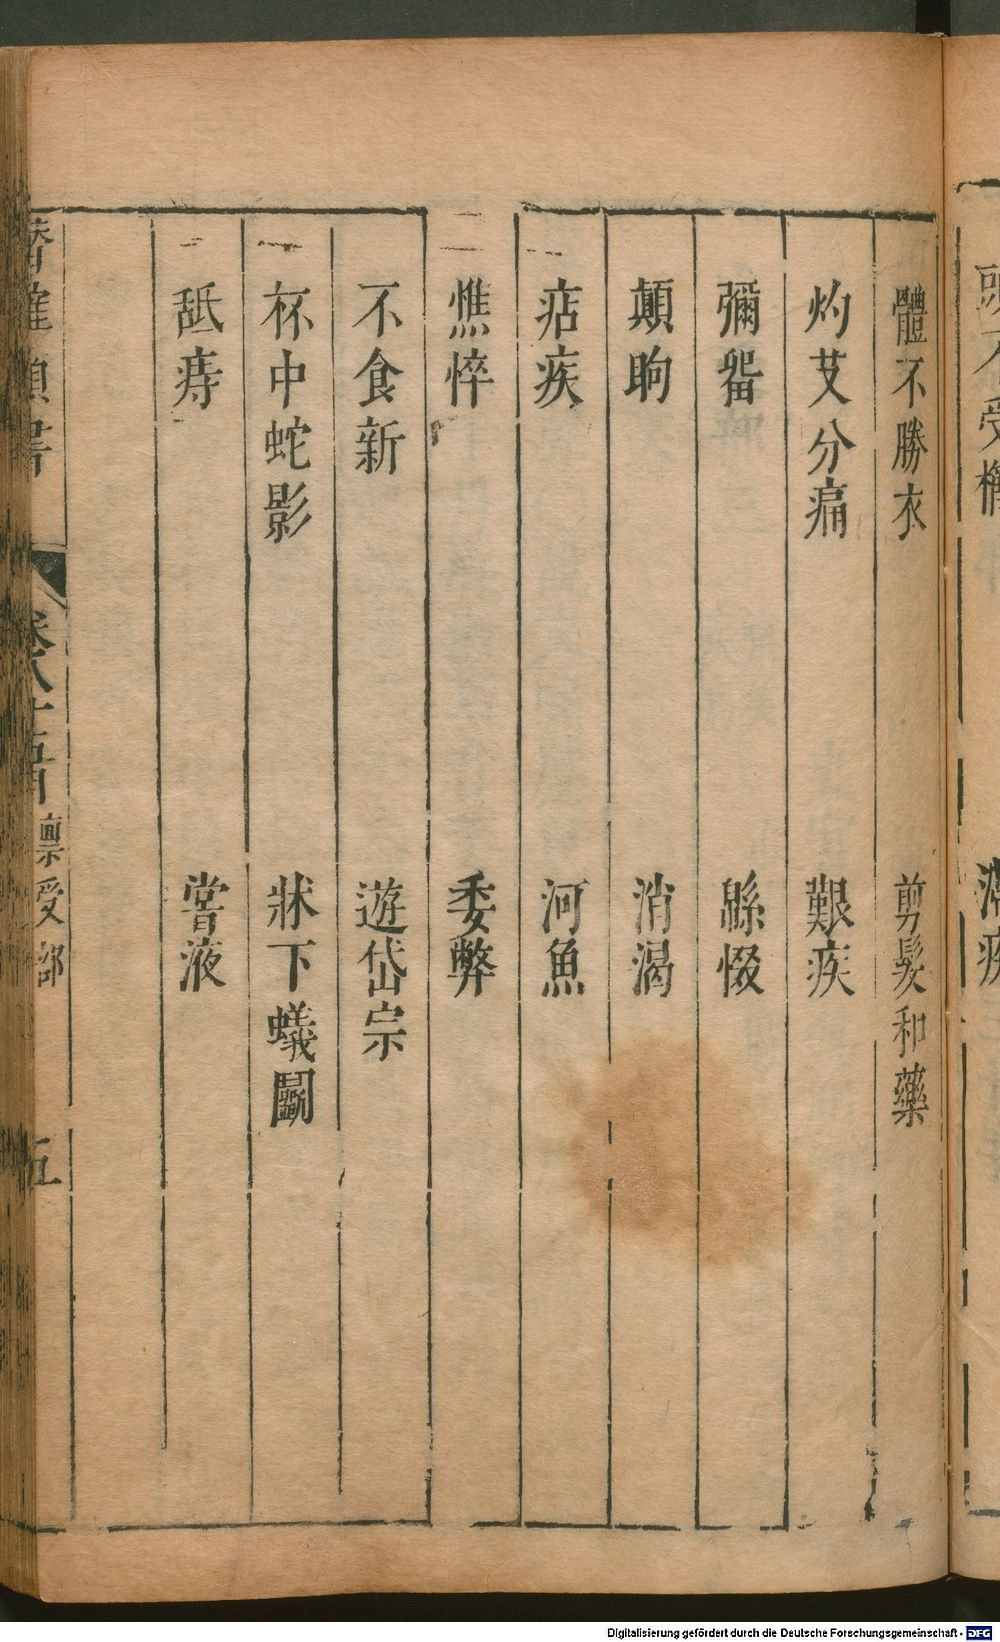 體不勝衣 剪髮和藥
灼艾分痛 艱疾
彌留 緜惙
顛眴 消渴
痁疾 河魚
憔悴 委弊
不食新 遊岱宗
杯中蛇影 牀下蟻鬭
舐痔 嘗液
卷八十五 稟受部 五
Digitalisierung gefördert durch die Deutsche Forschungsgemeinschaft - DFG